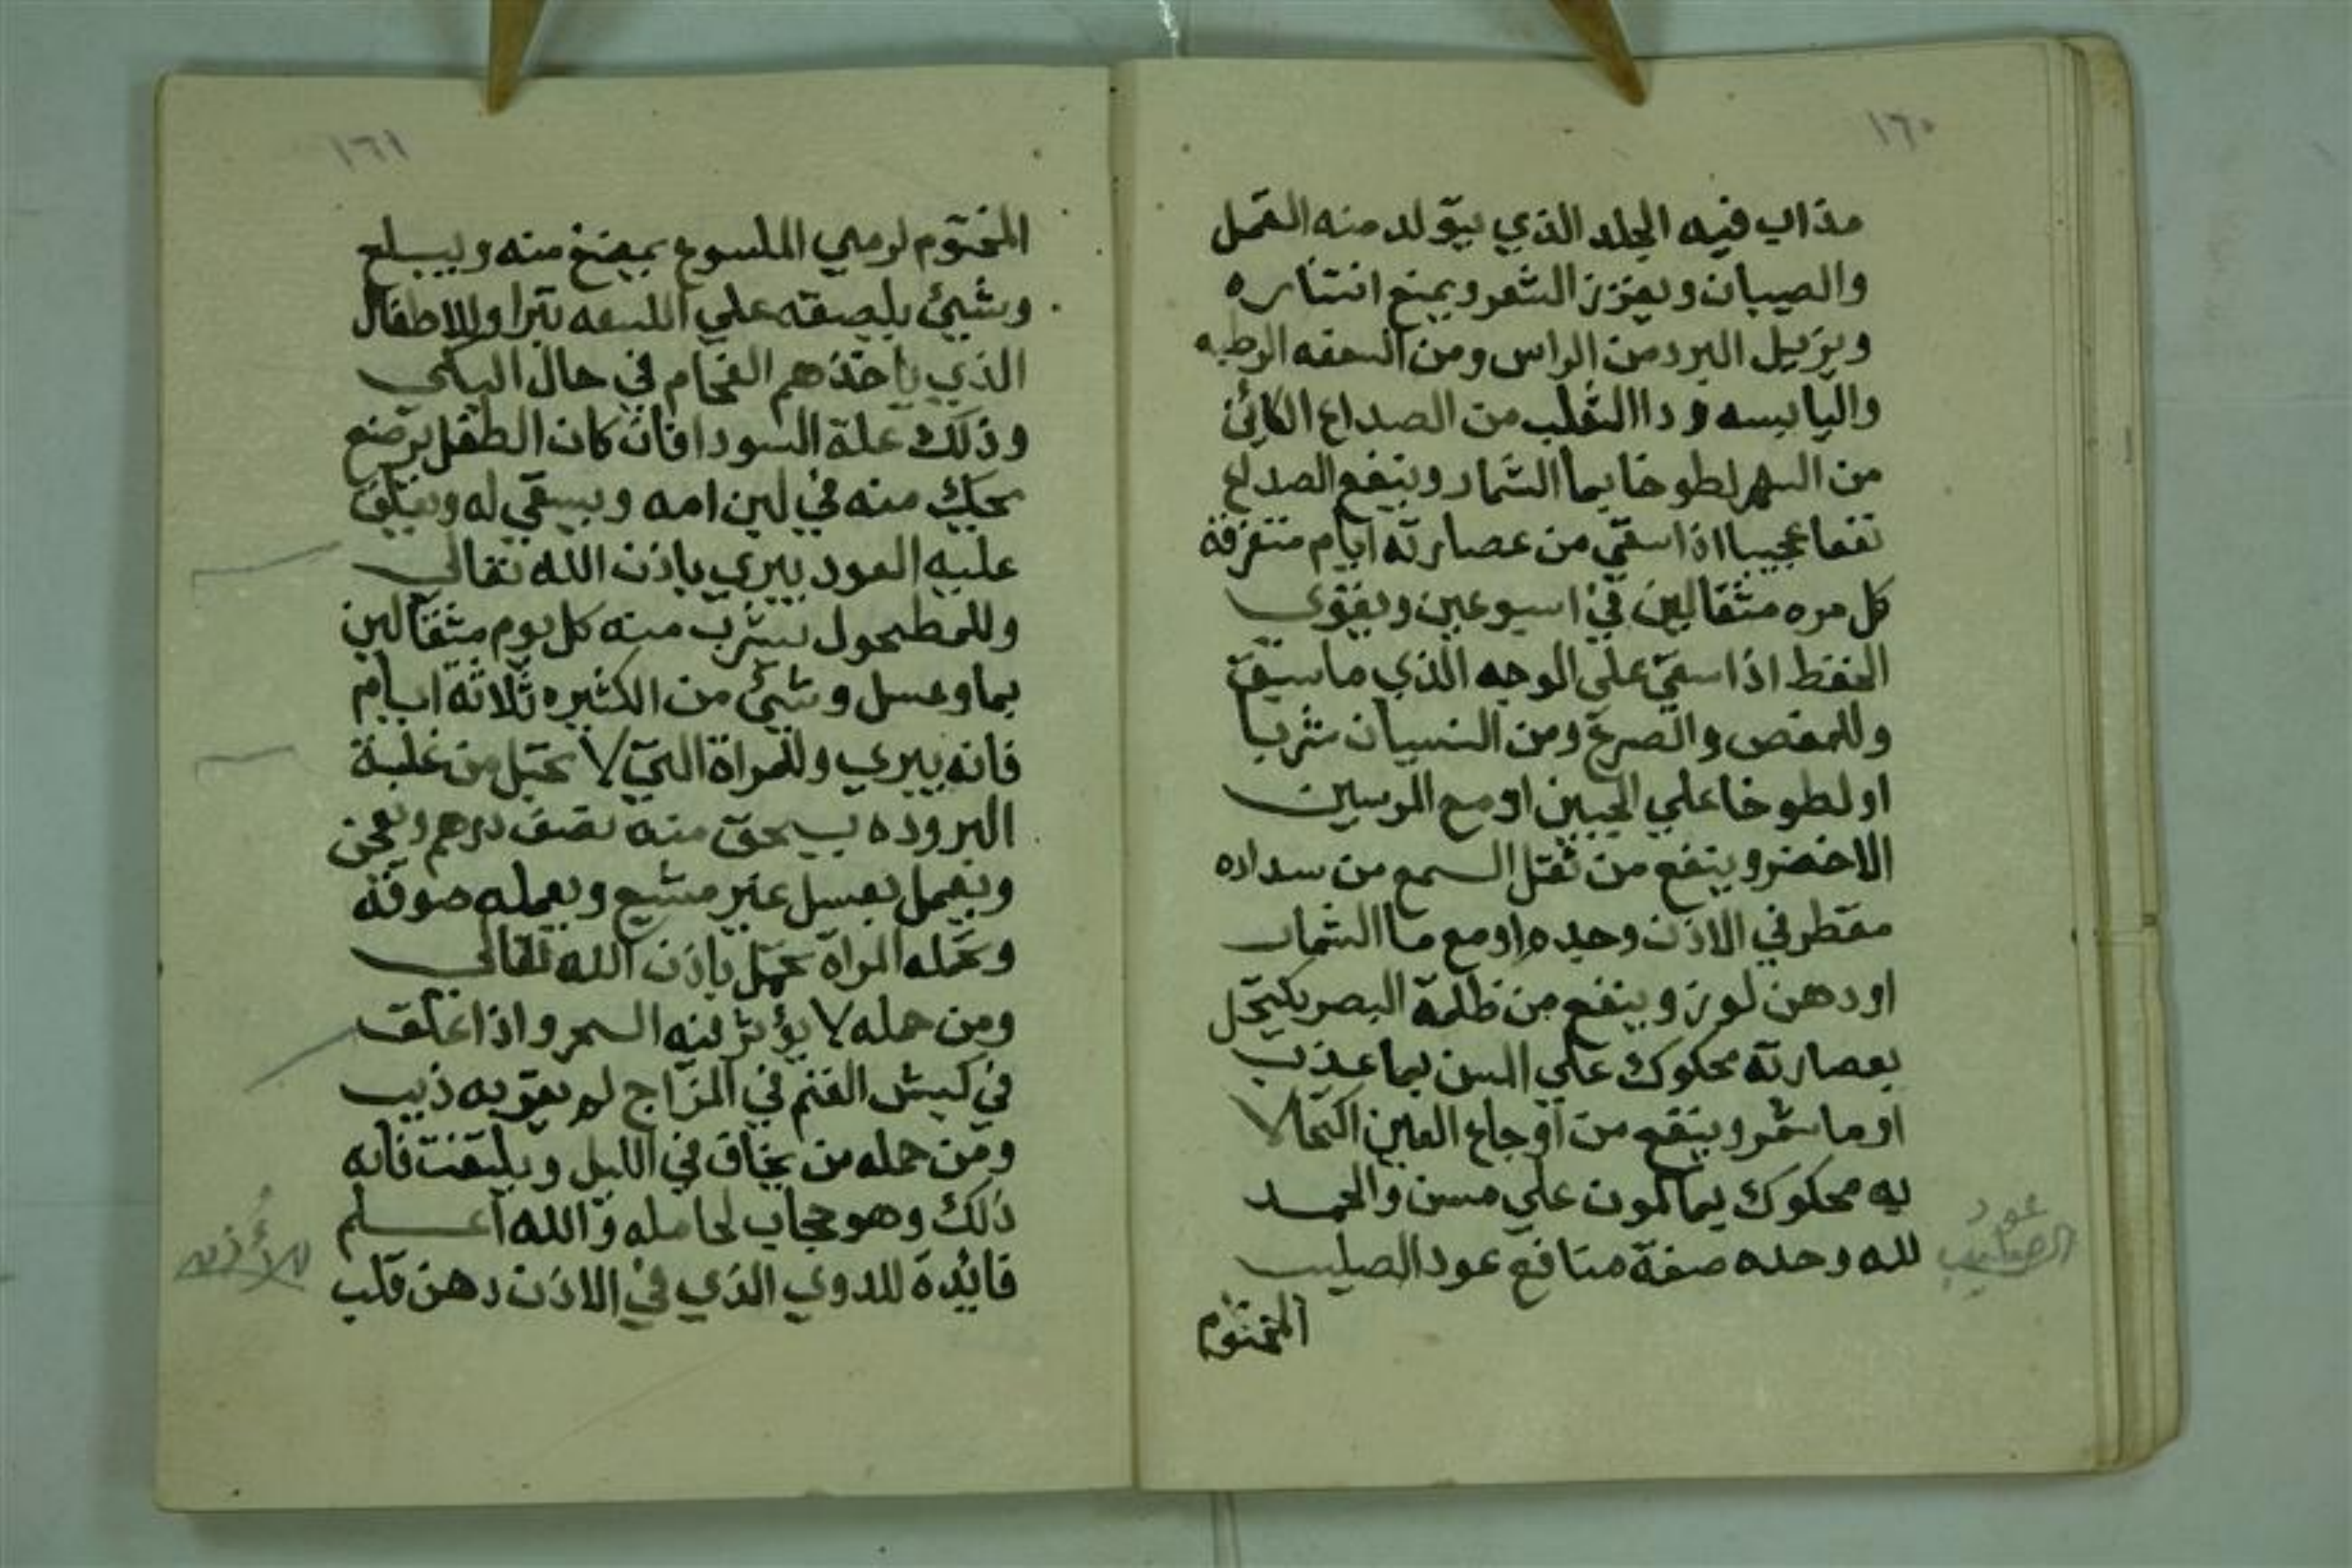 ١٦٠
مذاب فيه الجلد الذي يتولد منه القمل
والصيبان ويعزز الشعر ويمنع انتثاره
ويزيل البرد من الراس ومن السعفه الرطبه
واليابسه ودا الثعلب من الصداع الكائن
من السهر لطوخا بما الشمار وينفع الصداع
نفعا عجيبا اذا سقي من عصارته ايام متفرقة
كل مره مثقالين في اسبوعين ويقوي
الحفظ اذا سقي علي الوجه الذي ما سبق
وللمغص والصرع ومن النسيان شربا
او لطوخا علي الجبين او مع المرسين
الاخضر وينفع من ثقل السمع من سداده
مقطر في الاذن وحده او مع ما الشمار
او دهن لوز وينفع من ظلمة البصر يكتحل
بعصارته محكوك علي المسن بما عذب
او ما شمر وينفع من اوجاع العين اكتحالا
به محكوك بما لمون علي مسن والحمد
لله وحده صفة منافع عود الصليب
المختوم
عود
الصليب
١٦١
المختوم لرمي الملسوع بمضغ منه ويبلع
وشيئ يلصقه علي اللسعه تبرا وللاطفال
الذي ياخذهم الفحام في حال البكي
وذلك علة السودا فان كان الطفل يرضع
يحكك منه في لبن امه ويسقي له ويعلق
عليه العود يبري باذن الله تعالي
وللمطحول يشرب منه كل يوم مثقالين
بما وعسل وشيئ من الكثيره ثلاثة ايام
فانه يبري وللمراة التي لا تحبل من غلبة
البروده يسحق منه نصف درهم ويعجن
ويعمل بعسل عنبر مشيع ويعمله صوفة
وتحمله المراة تحبل باذن الله تعالي
ومن حمله لا يؤثر فيه السحر واذا علق
في كبش الغنم في المراح لم يقربه ذيب
ومن حمله من يخاف في الليل ويلتفت فانه
ذلك وهو حجاب لحامله والله اعلم
فائدة للدوي الذي في الاذن دهن قلب
للأذن